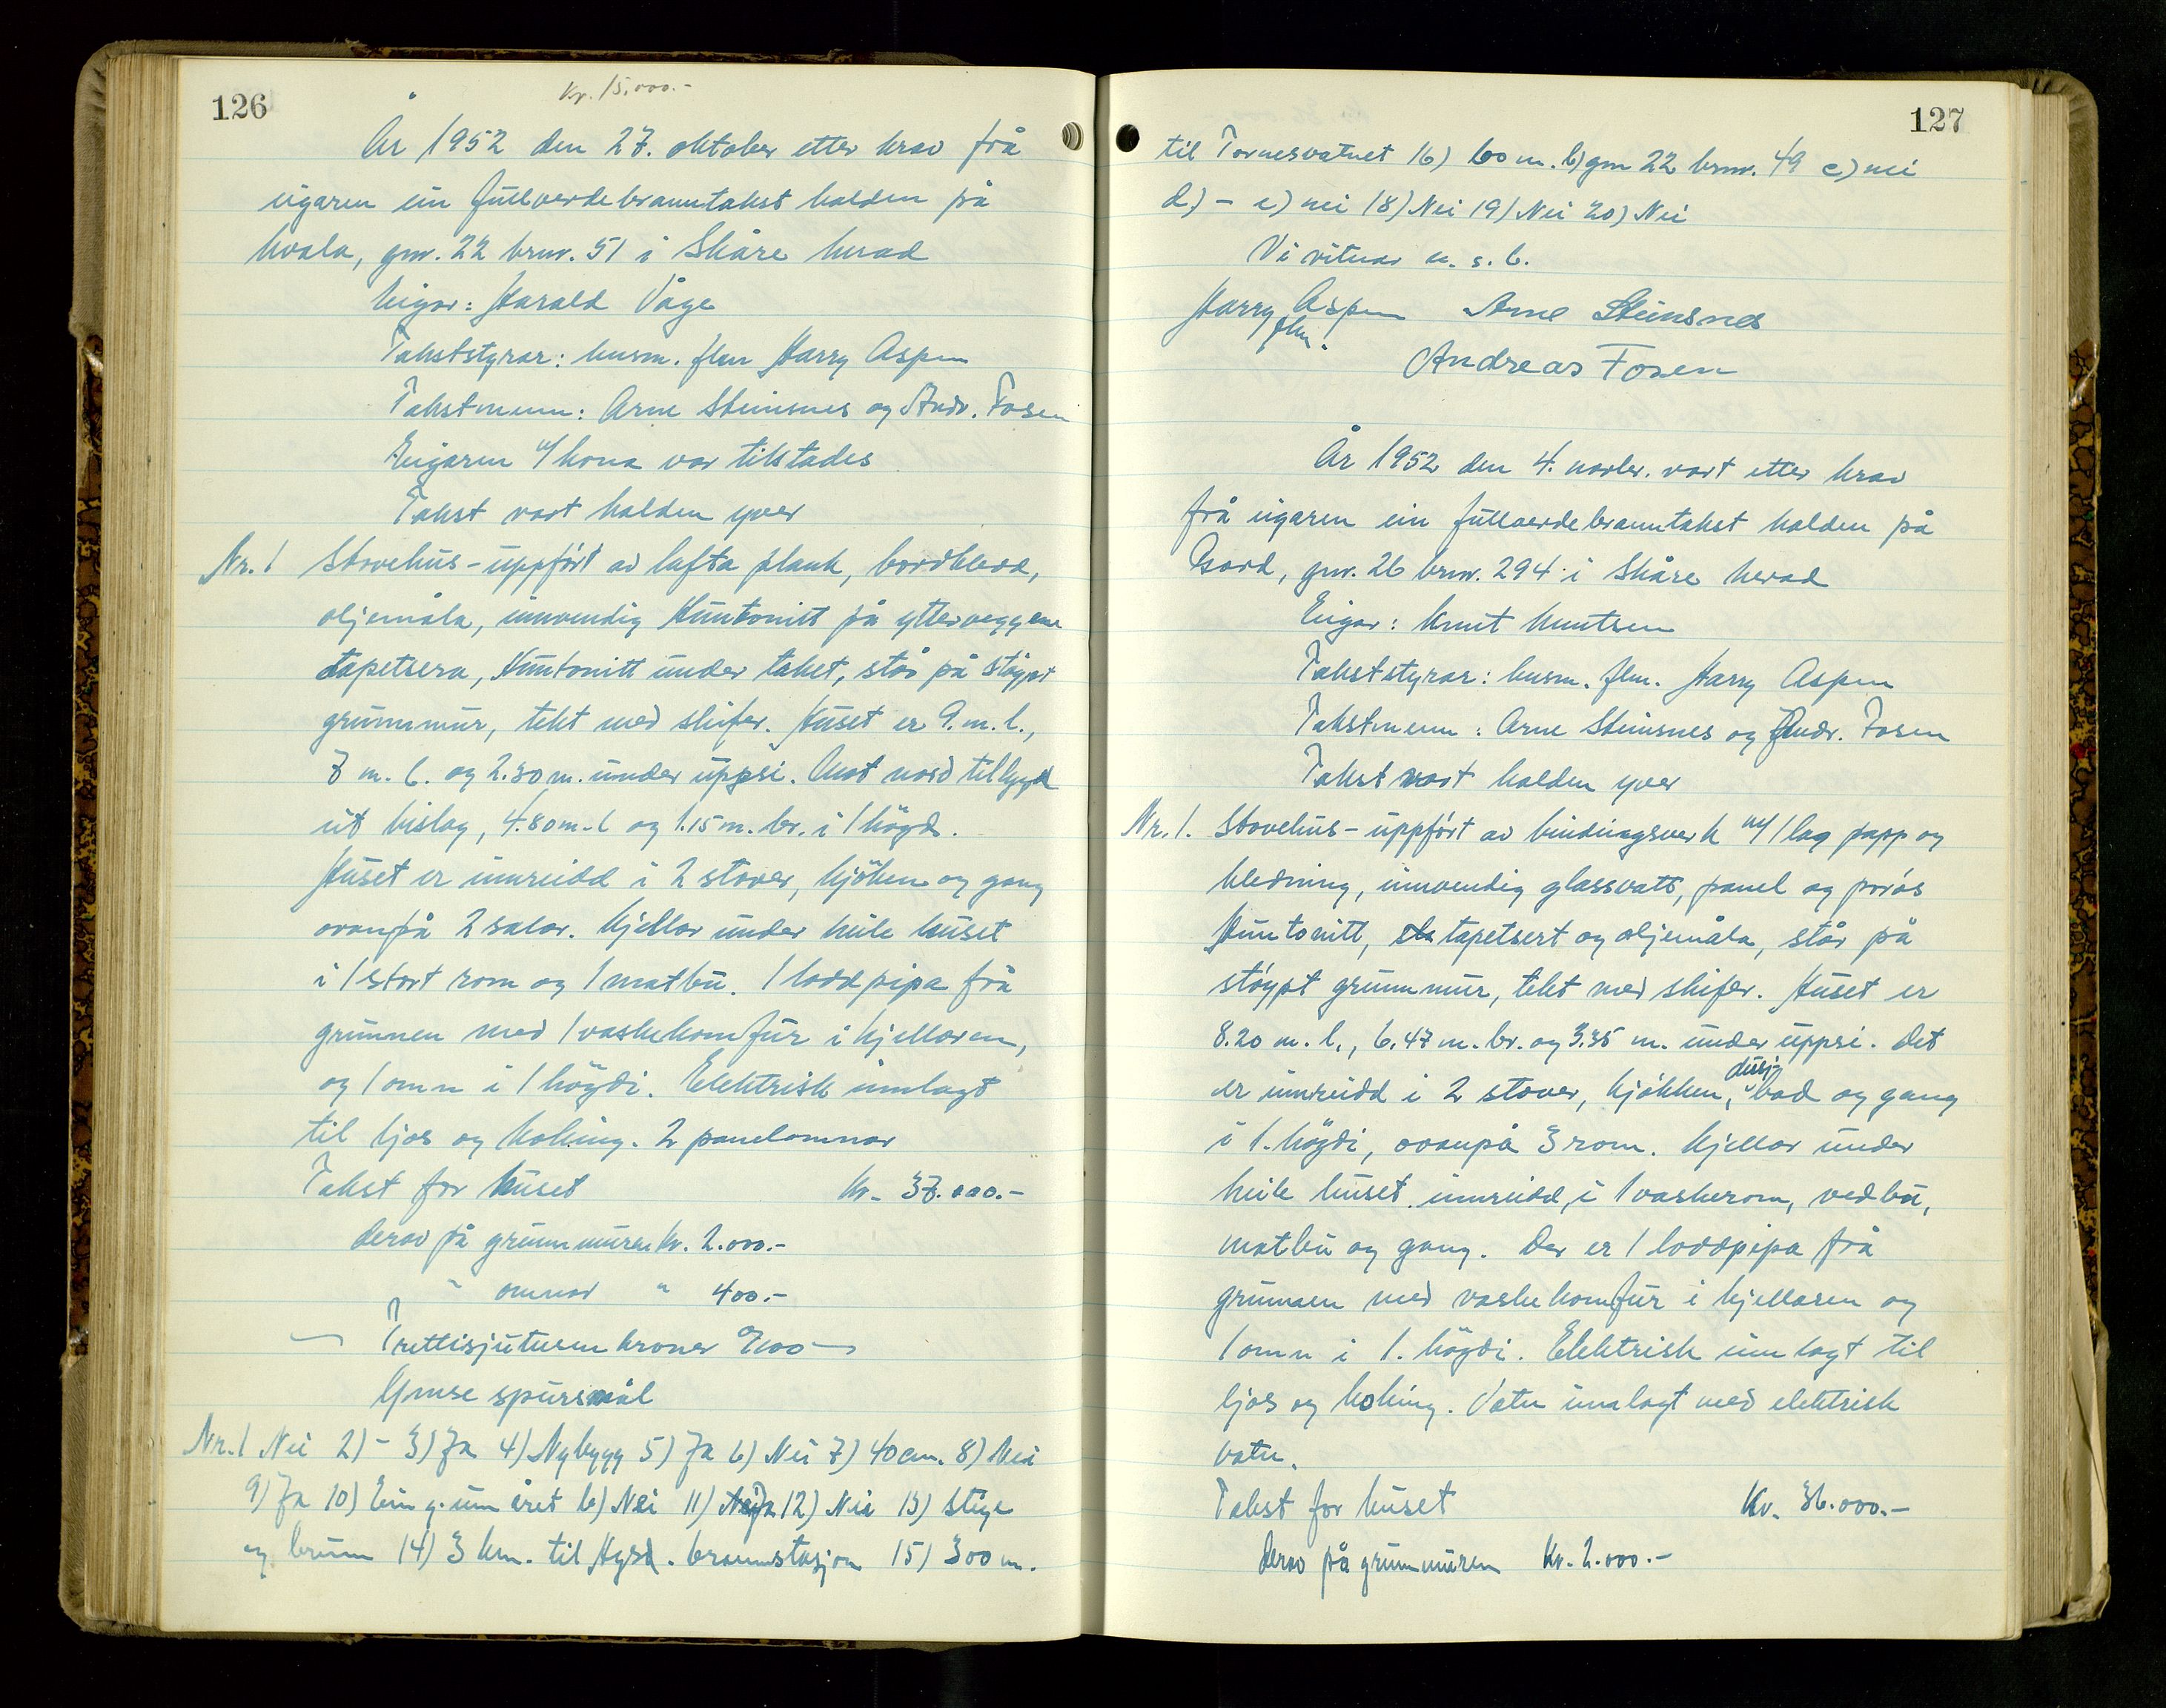 126
Kr. 15.000.-
År 1952 den 27. oktober etter krav frå
eigaren ein fullverdebranntakst halden på
Kvala, gnr. 22 brnr. 51 i Skåre herad
Eigar: Harald Våge
Takststyrar: husm. flm Harry Aspen
Takstmenn: Arne Steinsnes og Andr. Fosen
Eigaren m/kona var tilstades
Takst vart halden yver
Nr. 1 Stovehus - uppført av lafta plank, bordkledd,
oljemåla, innvendig Huntonitt på ytterveggene
tapetsera, Huntonitt under taket, står på støypt
grunnmur, tekt med skifer. Huset er 9. m. l.,
7 m. b. og 2.30 m. under uppsi. Mot nord tilbygd
eit bislag, 4.80 m. l og 1.15 m. br. i 1 högd.
Huset er innreidd i 2 stover, kjöken og gang
ovanpå 2 salar. Kjellar under heile huset
i 1 stort rom og 1 matbu. 1 loddpipa frå
grunnen med 1 vaskekomfur i kjellaren,
og 1 omn i 1 högdi. Elektrisk innlagt
til ljos og koking. 2 panelomnar
Takst for huset Kr. 37.000.-
derav på grunnmuren kr. 2.000.-
" omnar " 400.-
- Trettisjutusen kroner 0/00 -
Ymse spursmål
Nr. 1 Nei 2) - 3) Ja 4) Nybygg 5) Ja 6) Nei 7) 40 cm. 8) Nei
9) Ja 10) Ein g. um året b) Nei 11) Ja 12) Nei 13) Stige
og brunn 14) 3 km. til Hgsd. brannstasjon 15) 300 m.
127
til Tornesvatnet 16) 60 m. b) gnr 22 brnr. 49 c) nei
d) - e) nei 18) Nei 19) Nei 20) Nei
Vi vitnar u. s. b.
Harry Aspen Arne Steinsnes
flm.
Andreas Fosen
År 1952 den 4. novbr. vart etter krav
frå eigaren ein fullverdebranntakst halden på
Gard, gnr. 26 brnr. 294 i Skåre herad
Eigar: Knut Knutsen
Takststyrar: husm. flm. Harry Aspen
Takstmenn: Arne Steinsnes og Andr. Fosen
Takst vart halden yver
Nr. 1. Stovehus - uppført av bindingsverk m/1 lag papp og
kledning, innvendig glassvatt, panel og porøs
Huntonitt, tapetsert og oljemåla, står på
støypt grunnmur, tekt med skifer. Huset er
8.20 m. l., 6.47 m. br. og 3.35 m. under uppsi. Det
er innreidd i 2 stover, kjøkken, dusj- bad og gang
i 1. högdi, ovanpå 3 rom. Kjellar under
heile huset innreidd, i 1 vaskerom, vedbu,
matbu og gang. Der er 1 loddpipa frå
grunnen med vaskekomfur i kjellaren og
1 omn i 1. högdi. Elektrisk innlagt til
ljos og koking. Vatn innlagt med elektrisk
vatn.
Takst for huset Kr. 36.000.-
derav på grunnmuren Kr. 2.000.-